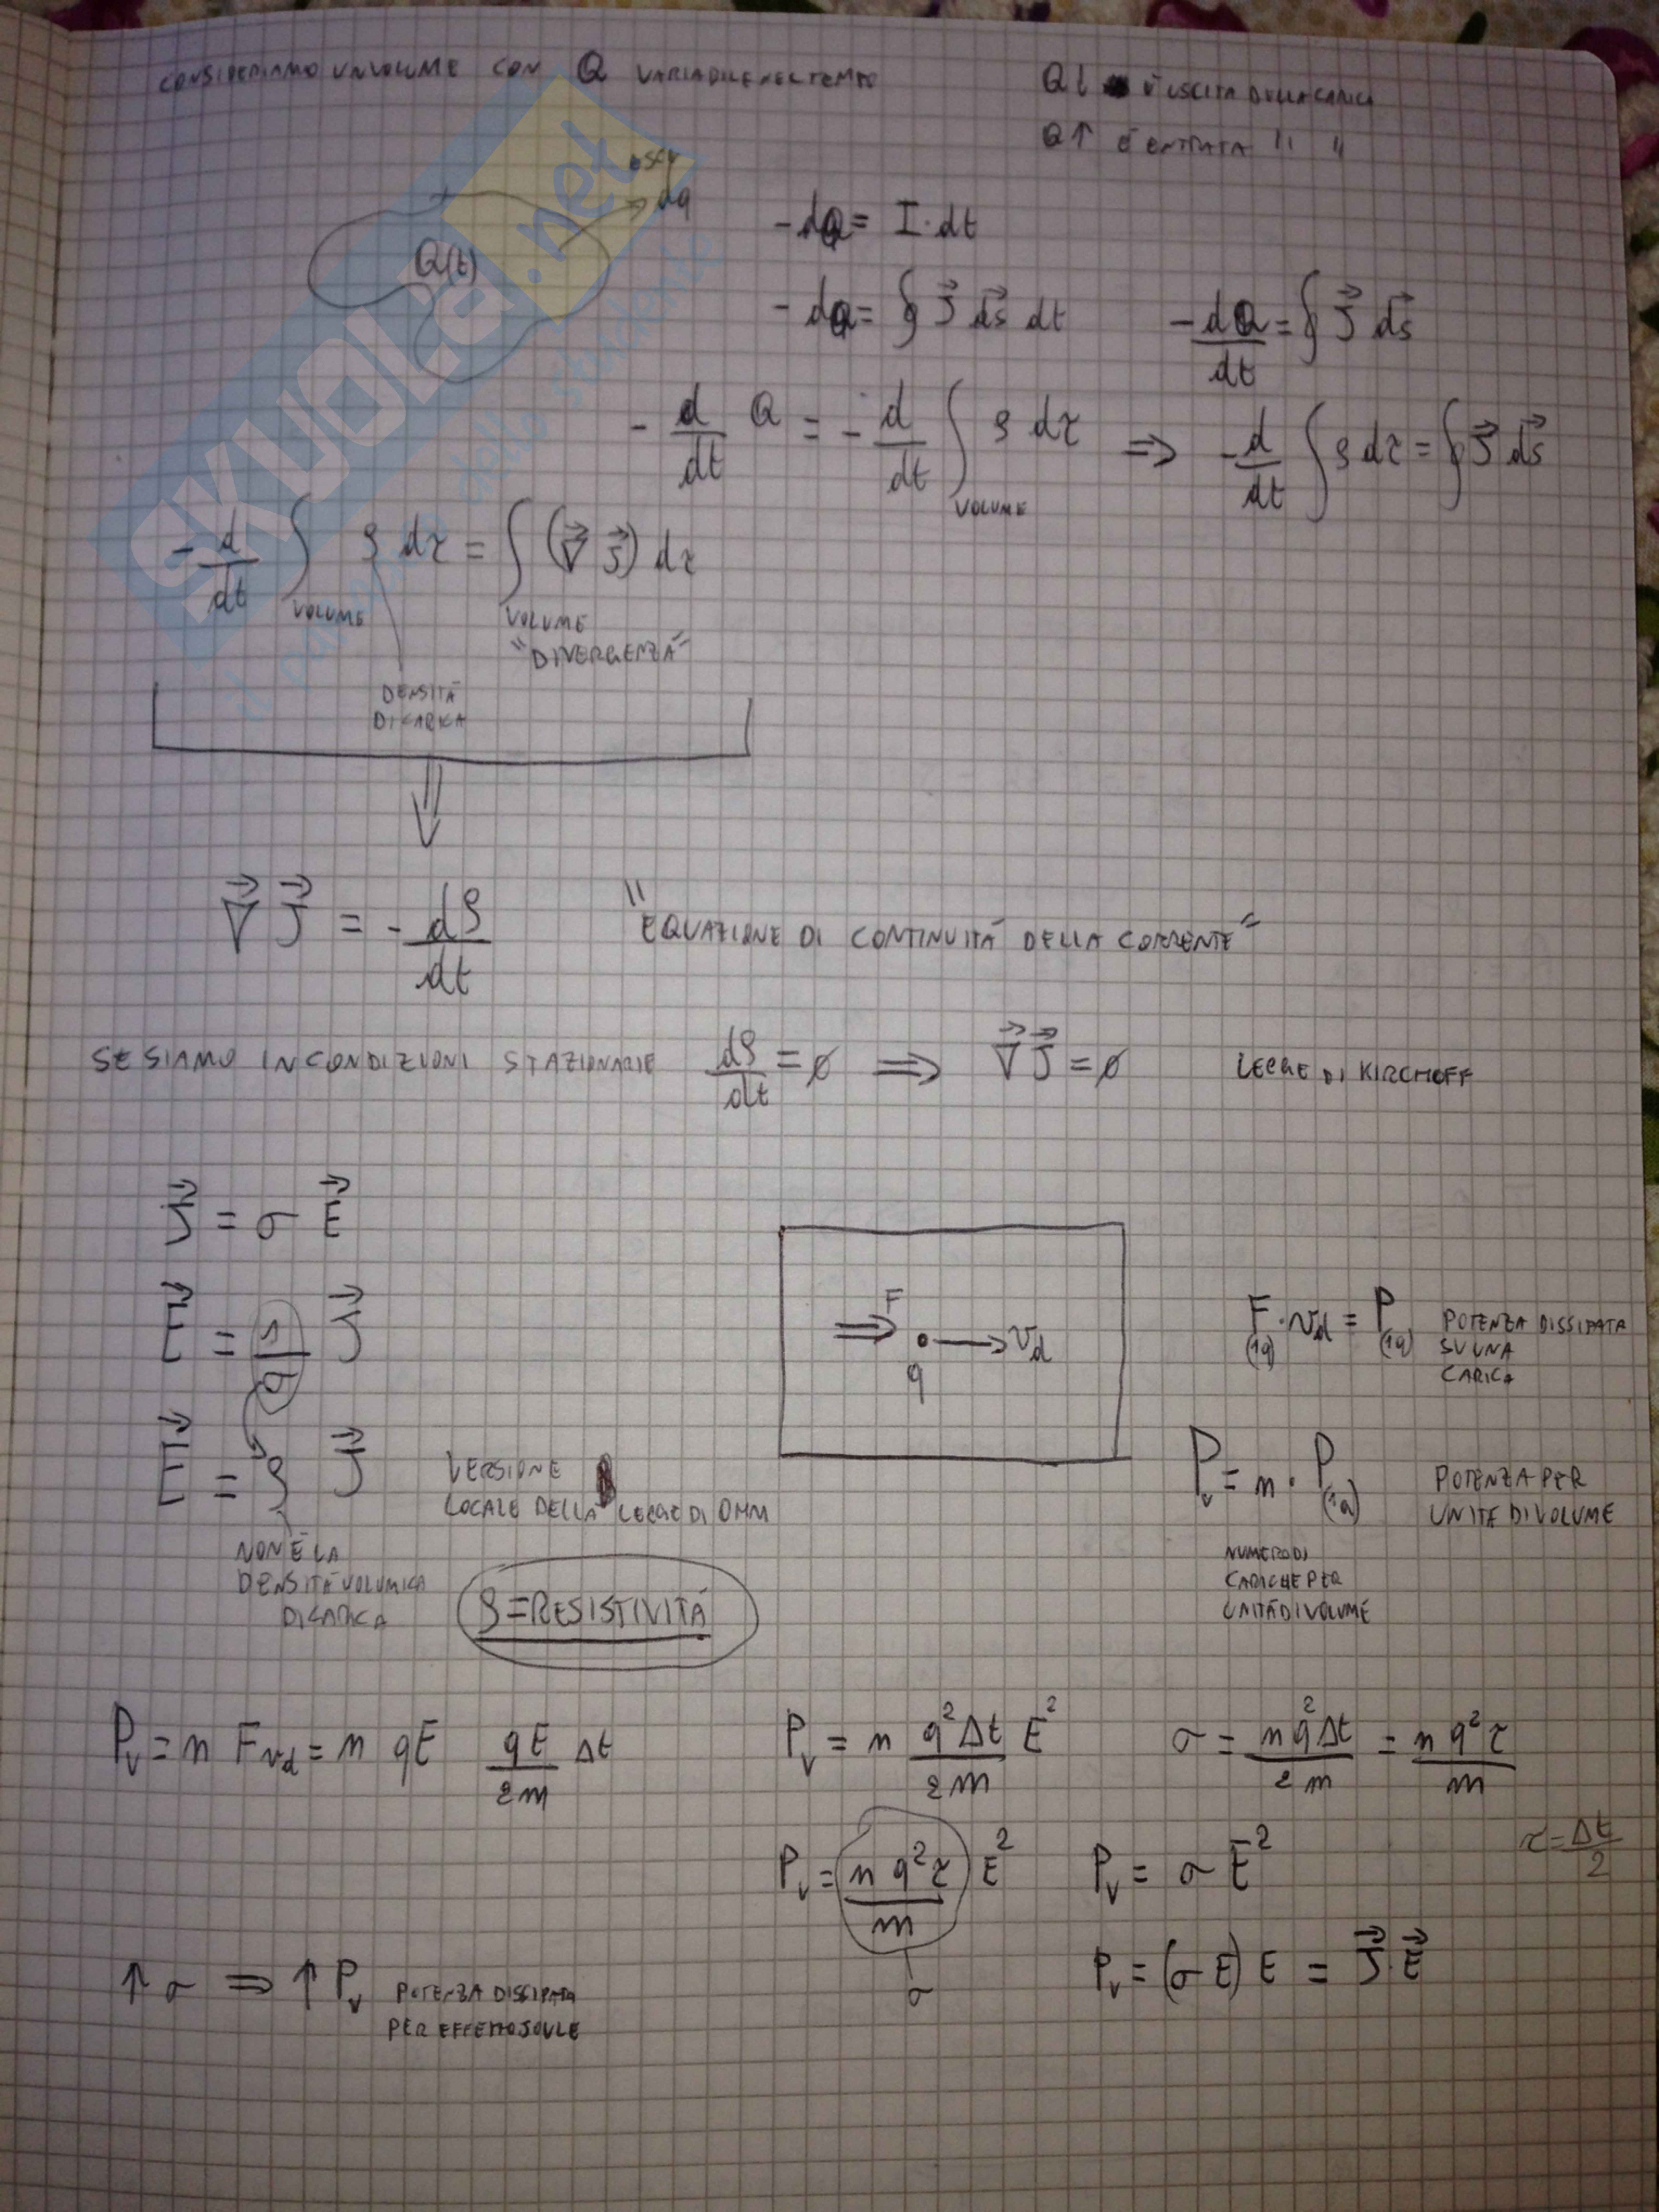 CONSIDERIAMO UN VOLUME CON Q VARIABILE NEL TEMPO
Q↓ È USCITA DELLA CARICA
Q↑ È ENTRATA " "
dq
Q(t)
-dQ = I·dt
-dQ = ∮ J⃗ ds⃗ dt
-dQ/dt = ∮ J⃗ ds⃗
- d/dt Q = - d/dt ∫ ρ dτ ⇒ - d/dt ∫ ρ dτ = ∮ J⃗ ds⃗
VOLUME
- d/dt ∫ ρ dτ = ∫ (∇⃗ J⃗) dτ
VOLUME VOLUME
"DIVERGENZA"
DENSITÁ
DI CARICA
∇⃗ J⃗ = - dρ/dt "EQUAZIONE DI CONTINUITÁ DELLA CORRENTE"
SE SIAMO IN CONDIZIONI STAZIONARIE dρ/dt = ∅ ⇒ ∇⃗ J⃗ = ∅ LEGGE DI KIRCHOFF
J⃗ = σ E⃗
E⃗ = 1/σ J⃗
E⃗ = ρ J⃗
VERSIONE
LOCALE DELLA LEGGE DI OHM
NON È LA
DENSITÁ VOLUMICA
DI CARICA
ρ = RESISTIVITÁ
F
q
v_d
F(1q) · v_d = P(1q) POTENZA DISSIPATA
SU UNA
CARICA
P_v = n · P(1q) POTENZA PER
UNITÁ DI VOLUME
NUMERO DI
CARICHE PER
UNITÁ DI VOLUME
P_v = n F v_d = n qE qE/2m Δt
P_v = n q²Δt/2m E²
σ = nq²Δt/2m = nq²τ/m
τ = Δt/2
P_v = nq²τ/m E²
σ
P_v = σ E²
P_v = (σ E) E = J⃗·E⃗
↑ σ ⇒ ↑ P_v POTENZA DISSIPATA
PER EFFETTO JOULE
SKUOLA.net